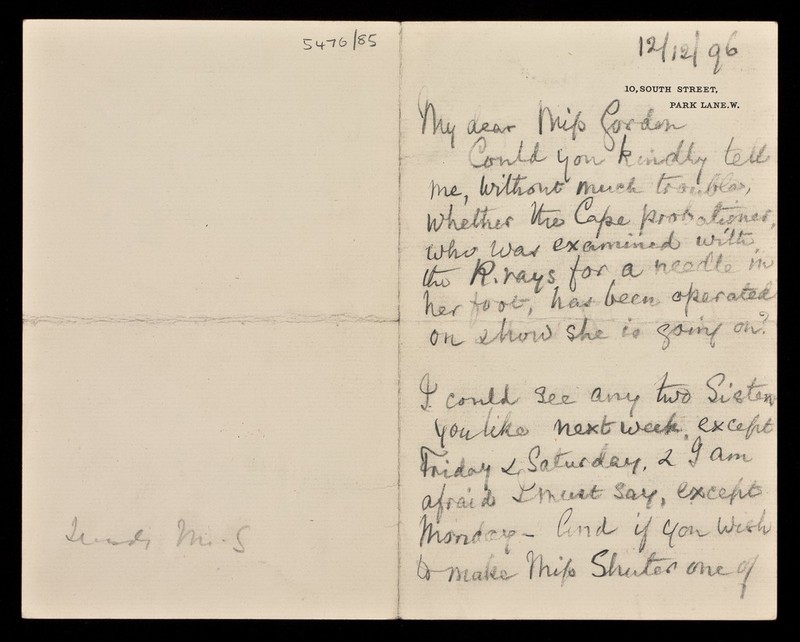 5476/85
12/12/96
10, SOUTH STREET,
PARK LANE. W.
My dear Miss Gordon
Could you kindly tell
me, without much trouble,
whether the Cape probationer,
who was examined with
the R. rays for a needle in
her foot, has been operated
on & how she is going on?
I could see any two Sisters
you like next week, except
Friday & Saturday, & I am
afraid I must say, except
Monday - And if you wish
to make Miss Shuter one of